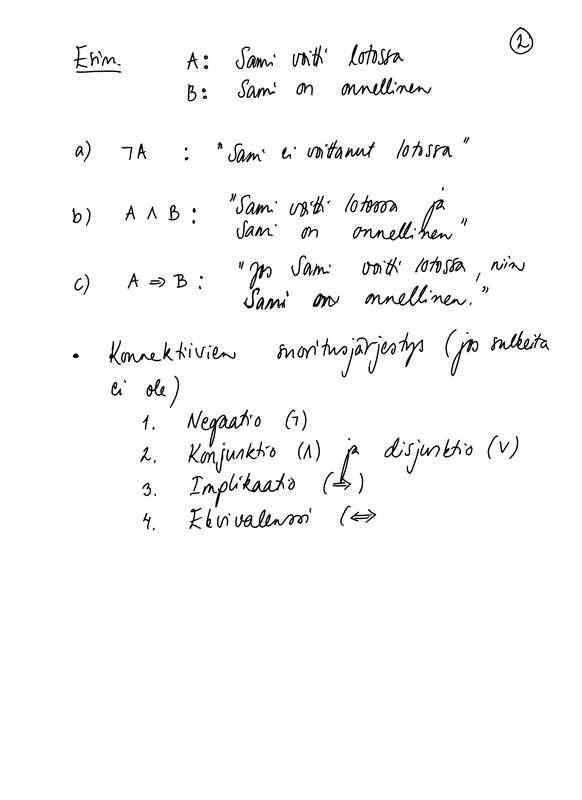 ②
Esim. A: Sami voitti lotossa
B: Sami on onnellinen
a) ¬A : "Sami ei voittanut lotossa"
b) A ∧ B : "Sami voitti lotossa ja
Sami on onnellinen"
c) A ⇒ B : "Jos Sami voitti lotossa, niin
Sami on onnellinen."
• Konnektiivien suoritusjärjestys (jos sulkeita
ei ole)
1. Negaatio (¬)
2. Konjunktio (∧) ja disjunktio (∨)
3. Implikaatio (⇒)
4. Ekvivalenssi (⇔